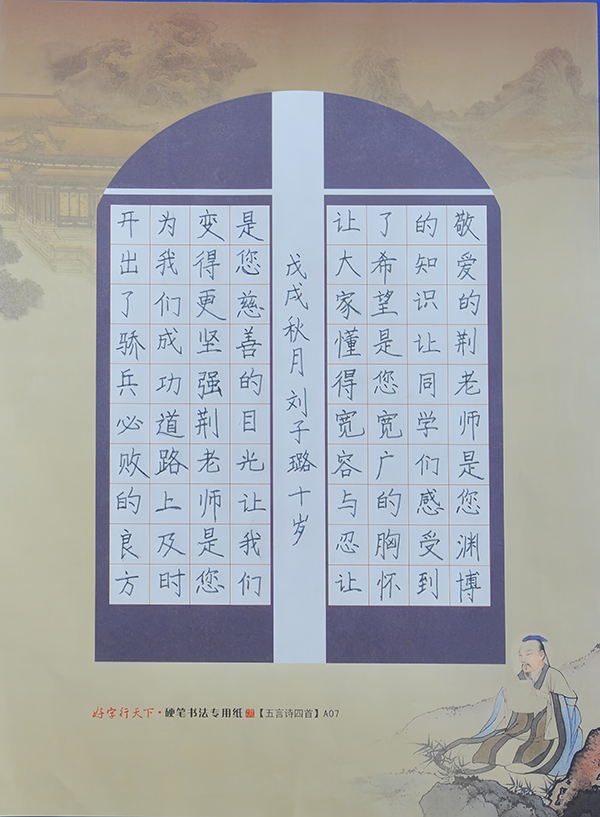 敬爱的荆老师是您渊博
的知识让同学们感受到
了希望是您宽广的胸怀
让大家懂得宽容与忍让
是您慈善的目光让我们
变得更坚强荆老师是您
为我们成功道路上及时
开出了骄兵必败的良方
戊戌秋月刘子璐十岁
好字行天下·硬笔书法专用纸【五言诗四首】A07